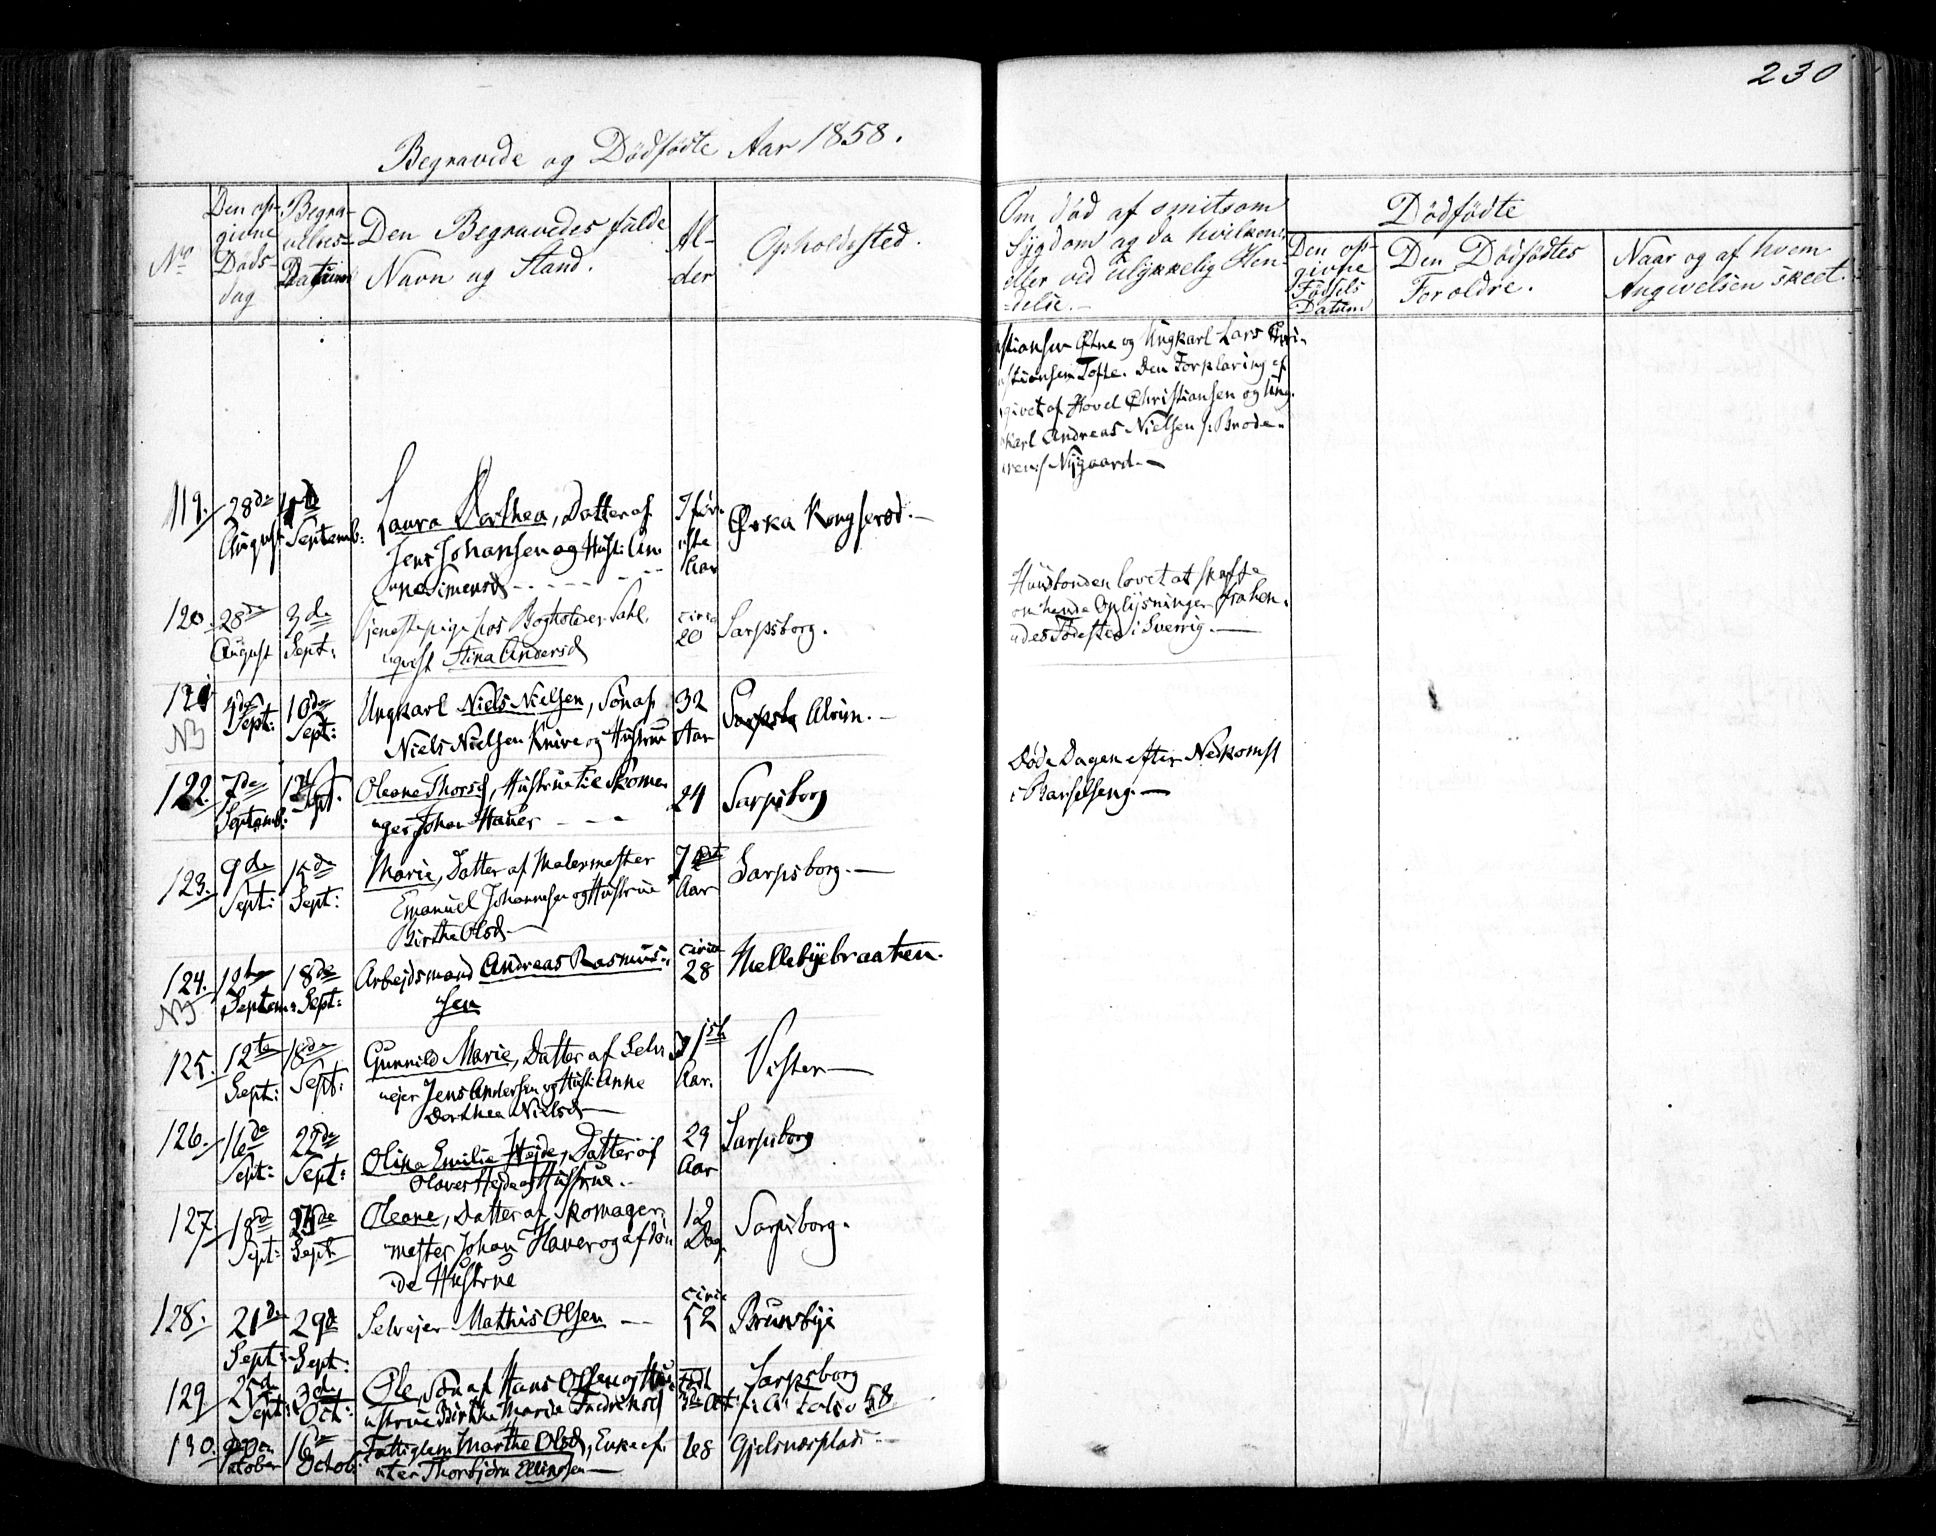 230
Begravede og Dödfödte Aar 1858.
No
Den op-
givne
Döds-
dag
Begra-
velses-
Datum
Den Begravedes fulde
Navn og Stand.
Al-
der
Opholdssted.
Om död af smitsom
Sygdom og da hvilken,
eller ved ulykkelig Hen-
delse.
Dödfödte
Den op-
givne
Födsels
Datum
Den Dödfödtes
Foræeldre.
Naar og af hvem
Angivelsen skeet.
stiansen Ötne og Ungkarl Lars Chri-
stiansen Tofte. Den Forklaring af
givet af Hovel Christiansen og Ung-
karl Andreas Nielsen /: Brode-
ren :/ Nygaard.
119. 28de August Septemb: Laura Dorthea, Datter af
Jens Johansen og Hust: An-
ne Simensd
Aar
Öska Kongseröd.
120. 28de August 3de Sept: Tjenestepige hos Bogholder Sahl-
qvist Stina Andersd
circa 20 Sarpsborg.
Huusbonden lovet at skaffe
om hende Oplysninger fra hen-
des Födested i Sverrig.
121 NB Sept: 10de Sept: Ungkarl Niels Nielsen, Sön af
Niels Nielsen Knive og Hustrue
32 Aar Alvim.
122. 7de Septemb: Sept. Oleane Thorsd, Hustrue til Skoma-
ger Johan Hauer
24 Sarpsborg
Döde Dagen efter Nedkomst
i Barselseng.
123. 9de Sept: 15de Sept: Marie, Datter af Malermester
Emanuel Johannesen og Hustrue
Birthe Olsd
Aar Sarpsborg.
124. NB 12te Septem: 18de Sept: Arbejdsmand Andreas Rasmus-
sen
circa 28 Hellebyebraaten.
125. 12te Sept: 18de Sept: Gunnild Marie, Datter af Selv-
ejer Jens Andersen og Hust: Anne
Dorthea Nielsd
Aar. Vister
126. 16de Sept: 22de Sept: Olina Emilie Hejde, Datter af
Olaves Hejde og Hustrue.
29 Aar Sarpsborg
127. 18de Sept: Sept Oleane, Datter af Skomager-
mester Johan Hauer og afdö-
de Hustrue
12 Dag. Sarpsborg.
128. 21de Sept: 29de Sept: Selvejer Mathis Olsen
circa 52 Brunsbye
129 25de Sept: 3de Oct: Ole, Sön af Hans Olsen og Hu-
strue Birthe Maria Fredriksd
Sarpsborg
130. 16de Octob: Fattiglem Marthe Olsd, Enke ef-
ter Thorbjörn Ellingsen
68